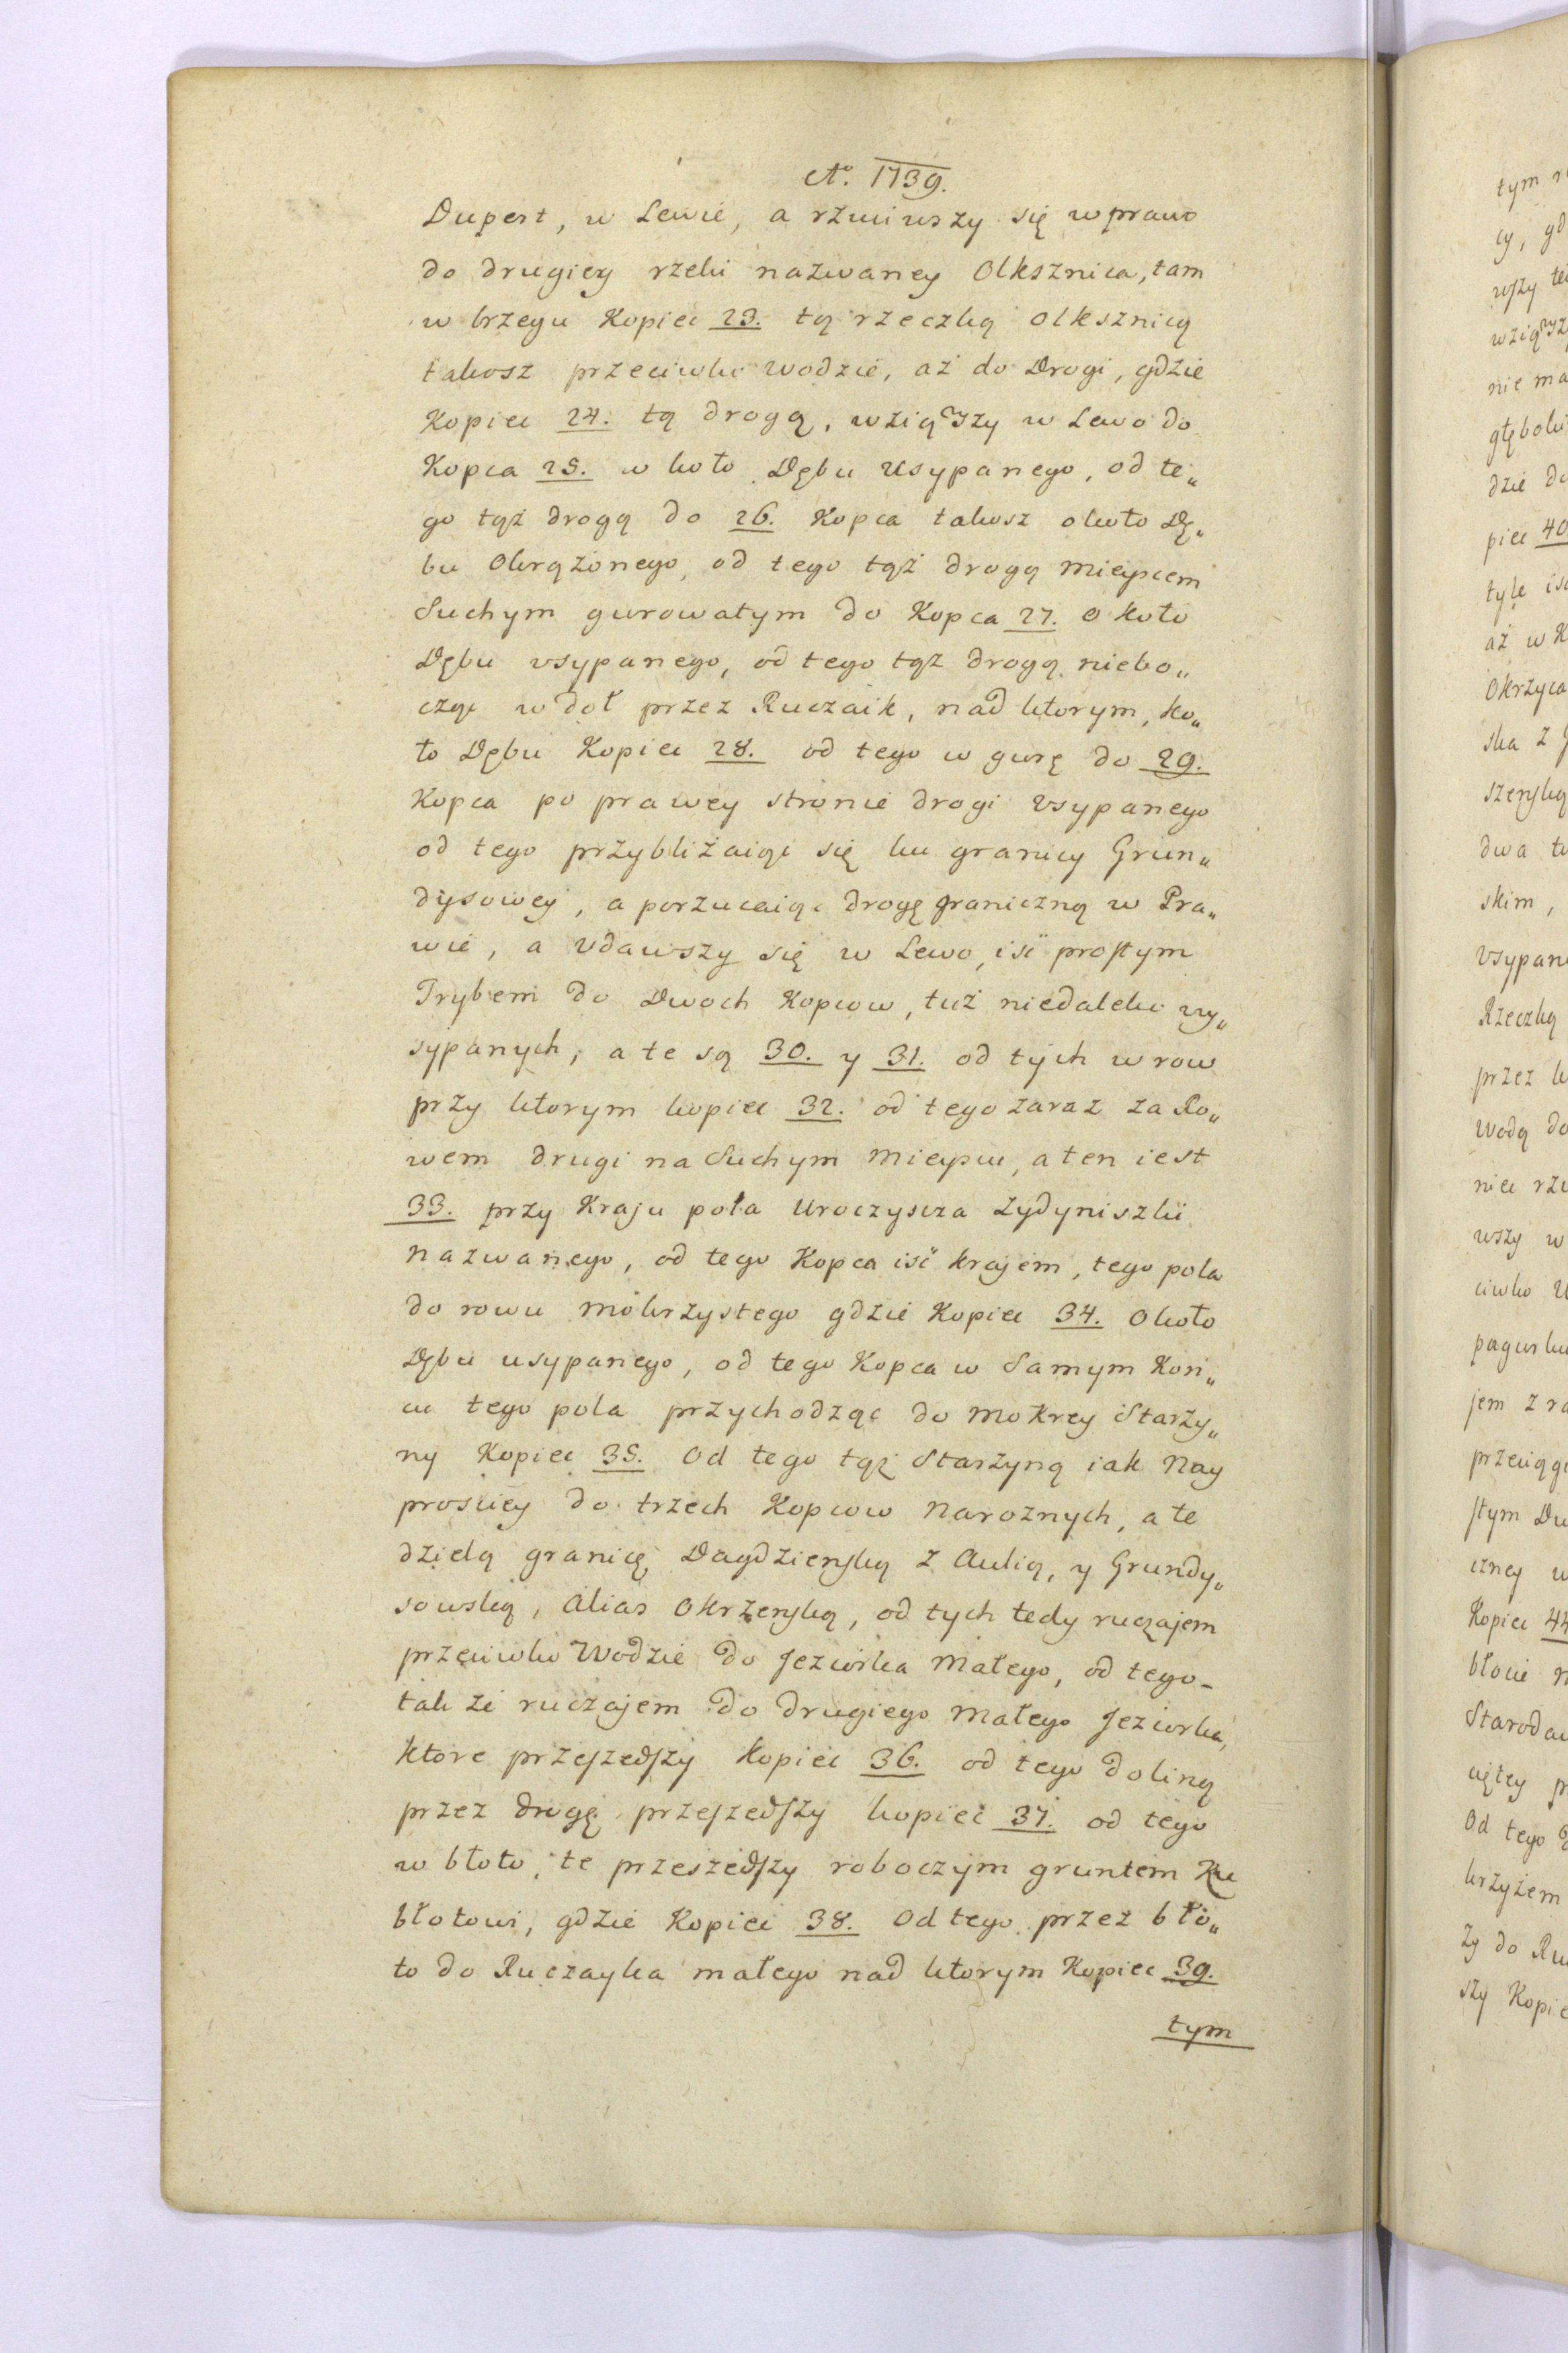 Ao. 1739.
Dupert, w Lewie, a rzuciwszy się w prawo
do drugiey rzeki nazwaney Olksznica, tam
w brzegu Kopiec 23. tą rzeczką Olksznicą
takosz przeciwko wodzie, aż do Drogi, gdzie
Kopiec 24. tą drogą, wziąwszy w Lewo do
Kopca 25. w koło Dębu Usypanego, od te„
go tąż drogą do 26. Kopca takosz około Dę„
bu Okrążonego, od tego tąż drogą mieyscem
Suchym gurowatym do Kopca 27. około
Dębu vsypanego, od tego tąż drogą niebo„
cząc w doł przez Ruczaik, nad ktorym, ko„
ło Dębu Kopiec 28. od tego w gurę do 29.
Kopca po prawey stronie drogi vsypanego
od tego przybliżaiąc się ku granicy Grun„
dysowey, a porzucaiąc drogę graniczną w Pra„
wie, a vdawszy się w Lewo, iść prostym
Trybem do Dwoch Kopcow, tuż niedaleko vy„
sypanych, a te są 30. y 31. od tych w row
przy ktorym kopiec 32. od tego zaraz za Ro„
wem drugi na Suchym mieyscu, a ten iest
33. przy Kraju pola Uroczyscza Zydyniszki
nazwanego, od tego Kopca iść krajem, tego pola
do rowu mokrzystego gdzie Kopiec 34. około
Dębu usypanego, od tego Kopca w Samym Kon„
cu tego pola przychodząc do mokrey Starzy„
ny Kopiec 35. Od tego tąż Starzyną iak nay
prosciey do trzech Kopcow narożnych, a te
dzielą granicę Dagdzienską z Aulią, y Grundy„
sowską, alias Okrzenską, od tych tedy ruczajem
przeciwko Wodzie do Jeziorka małego, od tego
tak że ruczajem do drugiego małego Jeziorka,
ktore przeszedszy kopiec 36. od tego doliną
przez drogę przeszedszy kopiec 37. od tego
w błoto, te przeszedszy roboczym gruntem Ku
błotowi, gdzie Kopiec 38. Od tego przez bło„
to do Ruczayka małego nad ktorym Kopiec 39.
tym